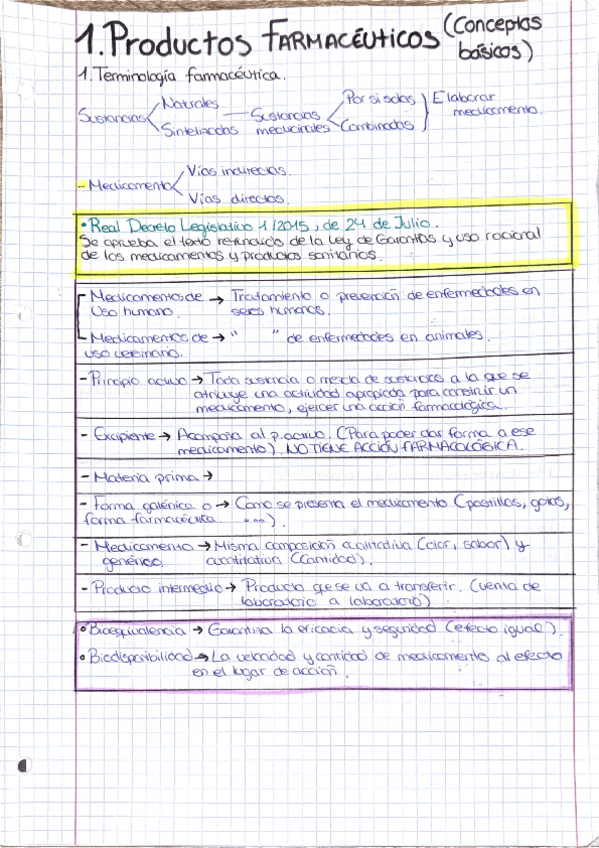 1. Productos FARMACÉUTICOS (Conceptos básicos)
1. Terminología farmacéutica.
Sustancias
Naturales
Sintetizadas
Sustancias medicinales
Por sí solas
Combinadas
Elaborar medicamento.
- Medicamento
Vías indirectas.
Vías directas.
• Real Decreto Legislativo 1/2015, de 24 de Julio.
Se aprueba el texto refundido de la Ley de Garantías y uso racional
de los medicamentos y productos sanitarios.
- Medicamentos de → Tratamiento o prevención de enfermedades en
Uso humano. seres humanos.
- Medicamentos de → " " de enfermedades en animales.
uso veterinario.
- Principio activo → Toda sustancia o mezcla de sustancias a la que se
atribuye una actividad apropiada para constituir un
medicamento, ejercer una acción farmacológica.
- Excipiente → Acompaña al p.activo. (Para poder dar forma a ese
medicamento). NO TIENE ACCIÓN FARMACOLÓGICA.
- Materia prima →
- Forma galénica o → Como se presenta el medicamento (pastillas, gotas,
forma farmacéutica. ...).
- Medicamento → Misma composición cualitativa (olor, sabor) y
genérico. cuantitativa (cantidad).
- Producto intermedio → Producto que se va a transferir. (venta de
laboratorio a laboratorio)
• Bioequivalencia → Garantiza la eficacia y seguridad (efecto igual).
• Biodisponibilidad → La velocidad y cantidad de medicamento al efecto
en el lugar de acción.